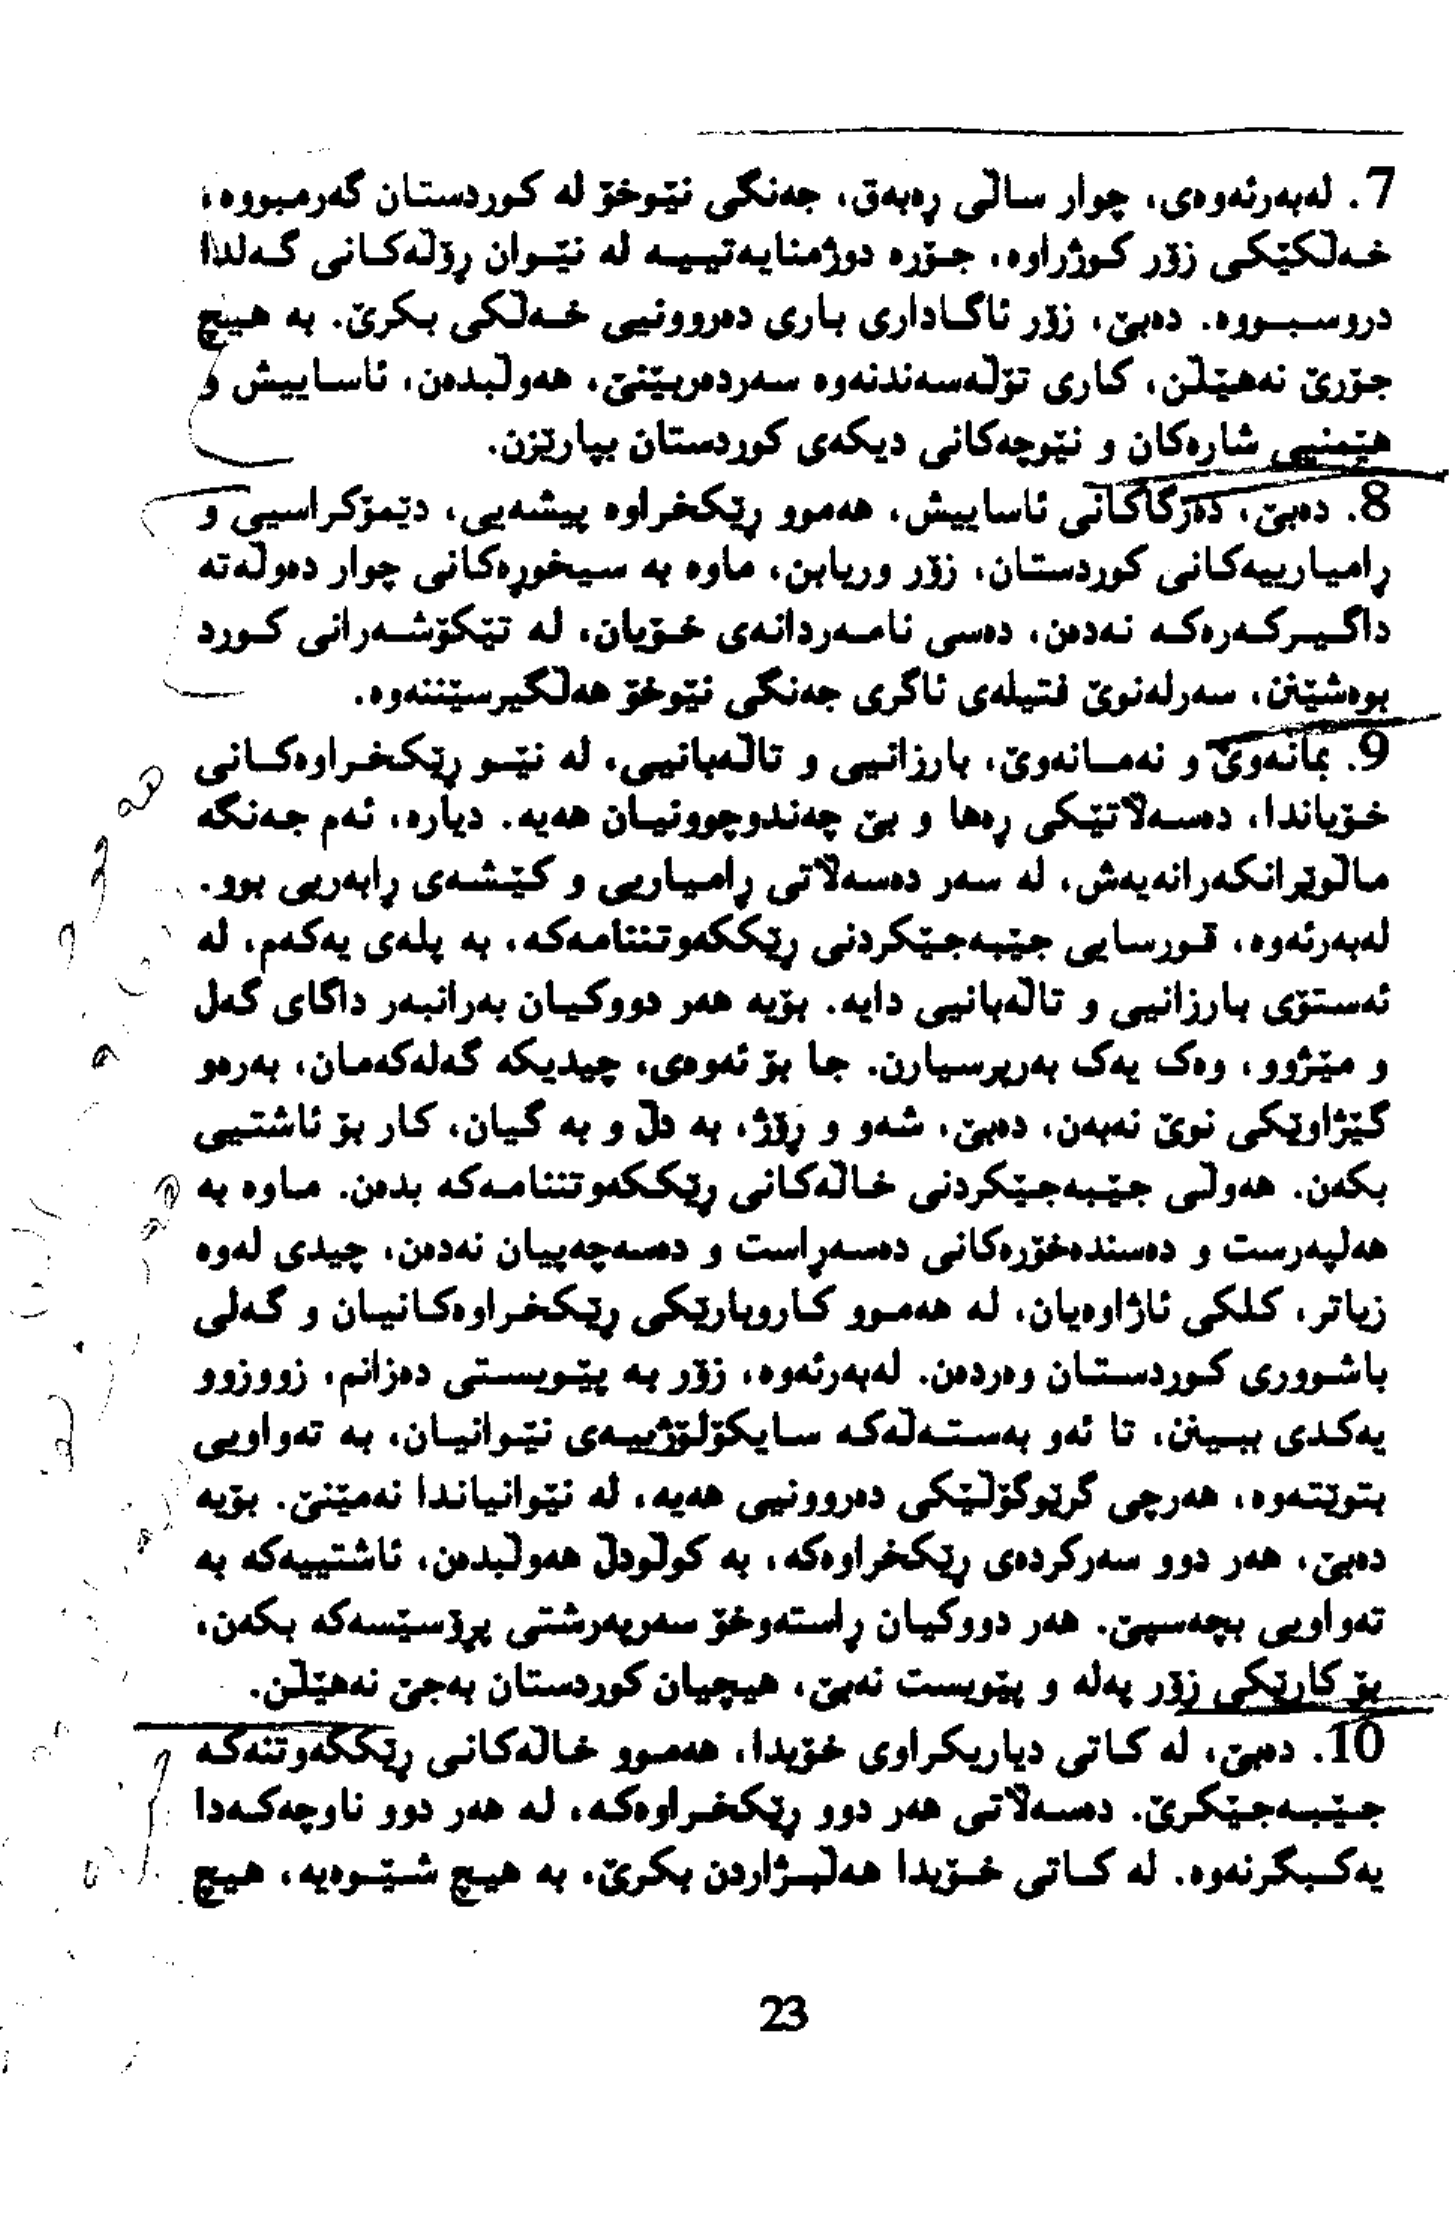 7. لەبەرئەوەی، چوار ساڵی ڕەبەق، جەنگی نێوخۆ لە کوردستان گەرمبووە،
خەڵکێکی زۆر کوژراوە، جۆرە دوژمنایەتییە لە نێوان ڕۆڵەکانی گەلدا
دروسبووە. دەبێ، زۆر ئاگاداری باری دەروونیی خەڵکی بکرێ. بە هیچ
جۆرێ نەهێڵن، کاری تۆڵەسەندنەوە سەردەربێنێ، هەوڵبدەن، ئاساییش و
هێمنیی شارەکان و نێوچەکانی دیکەی کوردستان بپارێزن.
8. دەبێ، دەزگاکانی ئاساییش، هەموو ڕێکخراوە پیشەیی، دێمۆکراسیی و
ڕامیارییەکانی کوردستان، زۆر وریابن، ماوە بە سیخوڕەکانی چوار دەوڵەتە
داگیرکەرەکە نەدەن، دەسی نامەردانەی خۆیان، لە تێکۆشەرانی کورد
بوەشێنن، سەرلەنوێ فتیلەی ئاگری جەنگی نێوخۆ هەڵگیرسێننەوە.
9. بمانەوێ و نەمانەوێ، بارزانیی و تاڵەبانیی، لە نێو ڕێکخراوەکانی
خۆیاندا، دەسەڵاتێکی ڕەها و بێ چەندوچوونیان هەیە. دیارە، ئەم جەنگە
ماڵوێرانکەرانەیەش، لە سەر دەسەڵاتی ڕامیاریی و کێشەی ڕابەریی بوو.
لەبەرئەوە، قورسایی جێبەجێکردنی ڕێککەوتننامەکە، بە پلەی یەکەم، لە
ئەستۆی بارزانیی و تاڵەبانیی دایە. بۆیە هەر دووکیان بەرانبەر داگای گەل
و مێژوو، وەک یەک بەرپرسیارن. جا بۆ ئەوەی، چیدیکە گەلەکەمان، بەرەو
گێژاوێکی نوێ نەبەن، دەبێ، شەو و ڕۆژ، بە دڵ و بە گیان، کار بۆ ئاشتیی
بکەن. هەوڵی جێبەجێکردنی خاڵەکانی ڕێککەوتننامەکە بدەن. ماوە بە
هەلپەرست و دەسندەخۆرەکانی دەسەڕاست و دەسەچەپیان نەدەن، چیدی لەوە
زیاتر، کلکی ئاژاوەیان، لە هەموو کاروبارێکی ڕێکخراوەکانیان و گەلی
باشووری کوردستان وەردەن. لەبەرئەوە، زۆر بە پێویستی دەزانم، زووزوو
یەکدی ببینن، تا ئەو بەستەڵەکە سایکۆلۆژییەی نێوانیان، بە تەواویی
بتوێتەوە، هەرچی گرێوگۆڵێکی دەروونیی هەیە، لە نێوانیاندا نەمێنێ. بۆیە
دەبێ، هەر دوو سەرکردەی ڕێکخراوەکە، بە کوڵودڵ هەوڵبدەن، ئاشتییەکە بە
تەواویی بچەسپێ. هەر دووکیان ڕاستەوخۆ سەرپەرشتی پرۆسێسەکە بکەن،
بۆ کارێکی زۆر پەلە و پێویست نەبێ، هیچیان کوردستان بەجێ نەهێڵن.
10. دەبێ، لە کاتی دیاریکراوی خۆیدا، هەموو خاڵەکانی ڕێککەوتنەکە
جێبەجێکرێ. دەسەڵاتی هەر دوو ڕێکخراوەکە، لە هەر دوو ناوچەکەدا
یەکبگرنەوە. لە کاتی خۆیدا هەڵبژاردن بکرێ، بە هیچ شێوەیە، هیچ
23